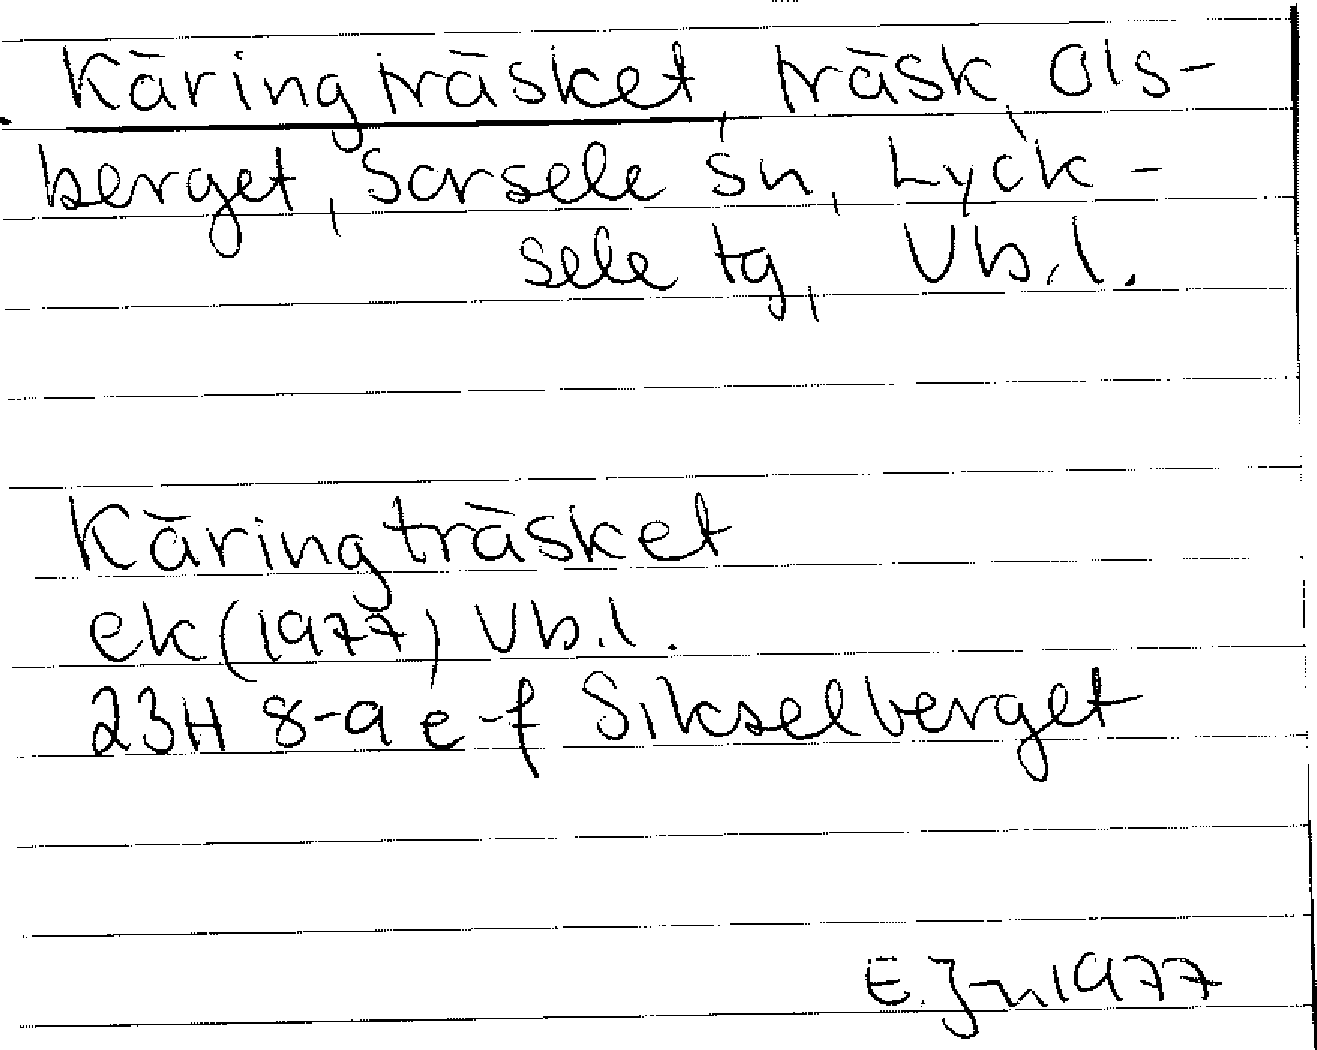 Käringträsket, träsk, Ols-
berget, Sorsele sn, Lyck-
sele tg, Vb.l.
Käringträsket
ek (1977) Vb.l.
23H 8-9 e-f Sikselberget
E. Jn 1977